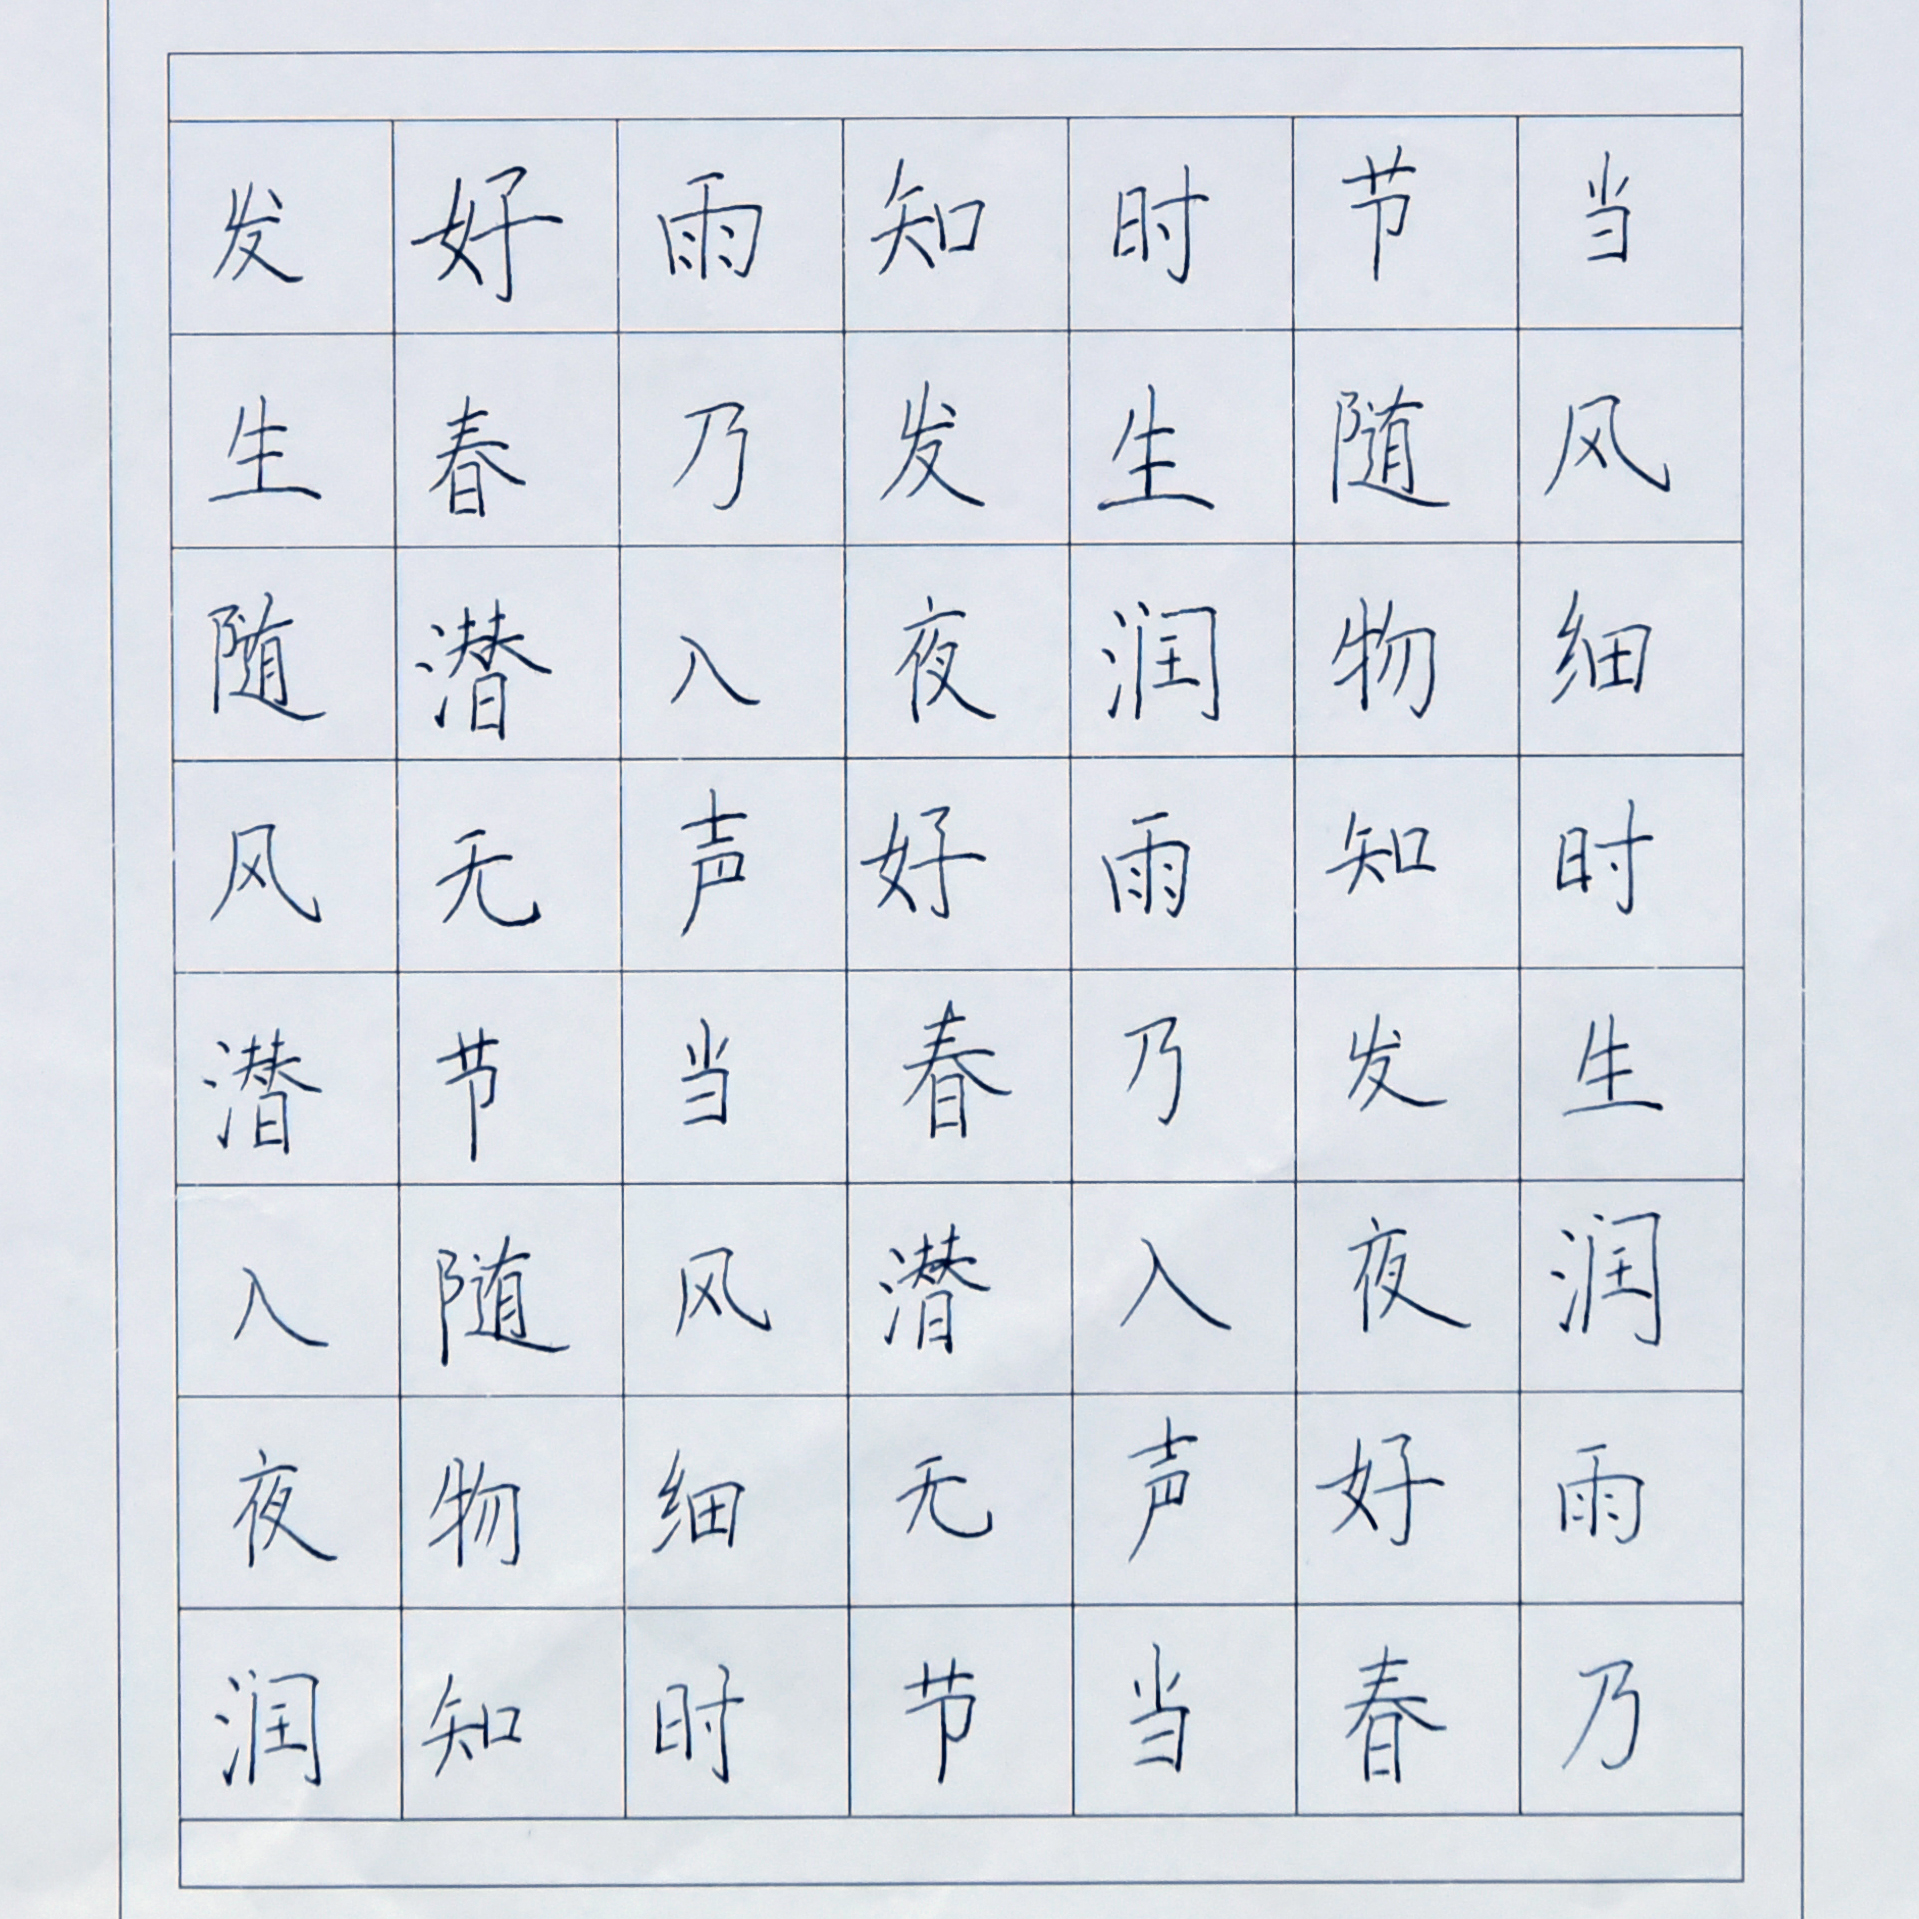 发好雨知时节当
生春乃发生随风
随潜入夜润物细
风无声好雨知时
潜节当春乃发生
入随风潜入夜润
夜物细无声好雨
润知时节当春乃